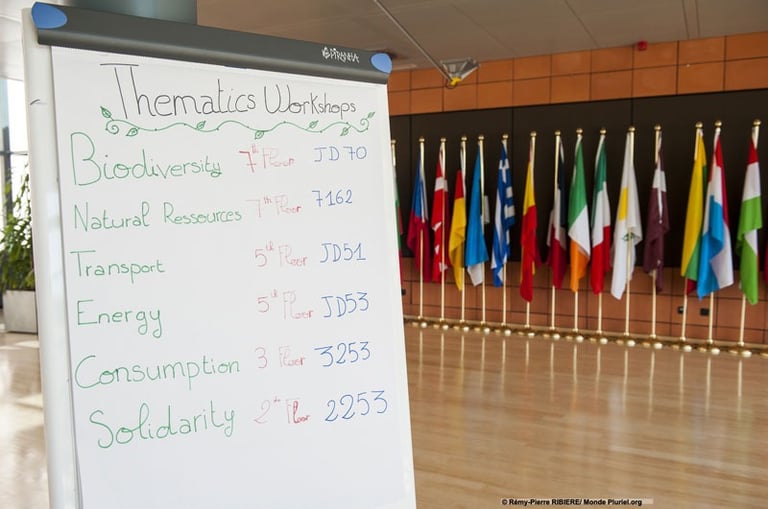 PIRANHA
Thematics Workshops
Biodiversity 7th Floor JD70
Natural Ressources 7th Floor 7162
Transport 5th Floor JD51
Energy 5th Floor JD53
Consumption 3 Floor 3253
Solidarity 2th Floor 2253
© Rémy-Pierre RIBIERE/ Monde Pluriel.org